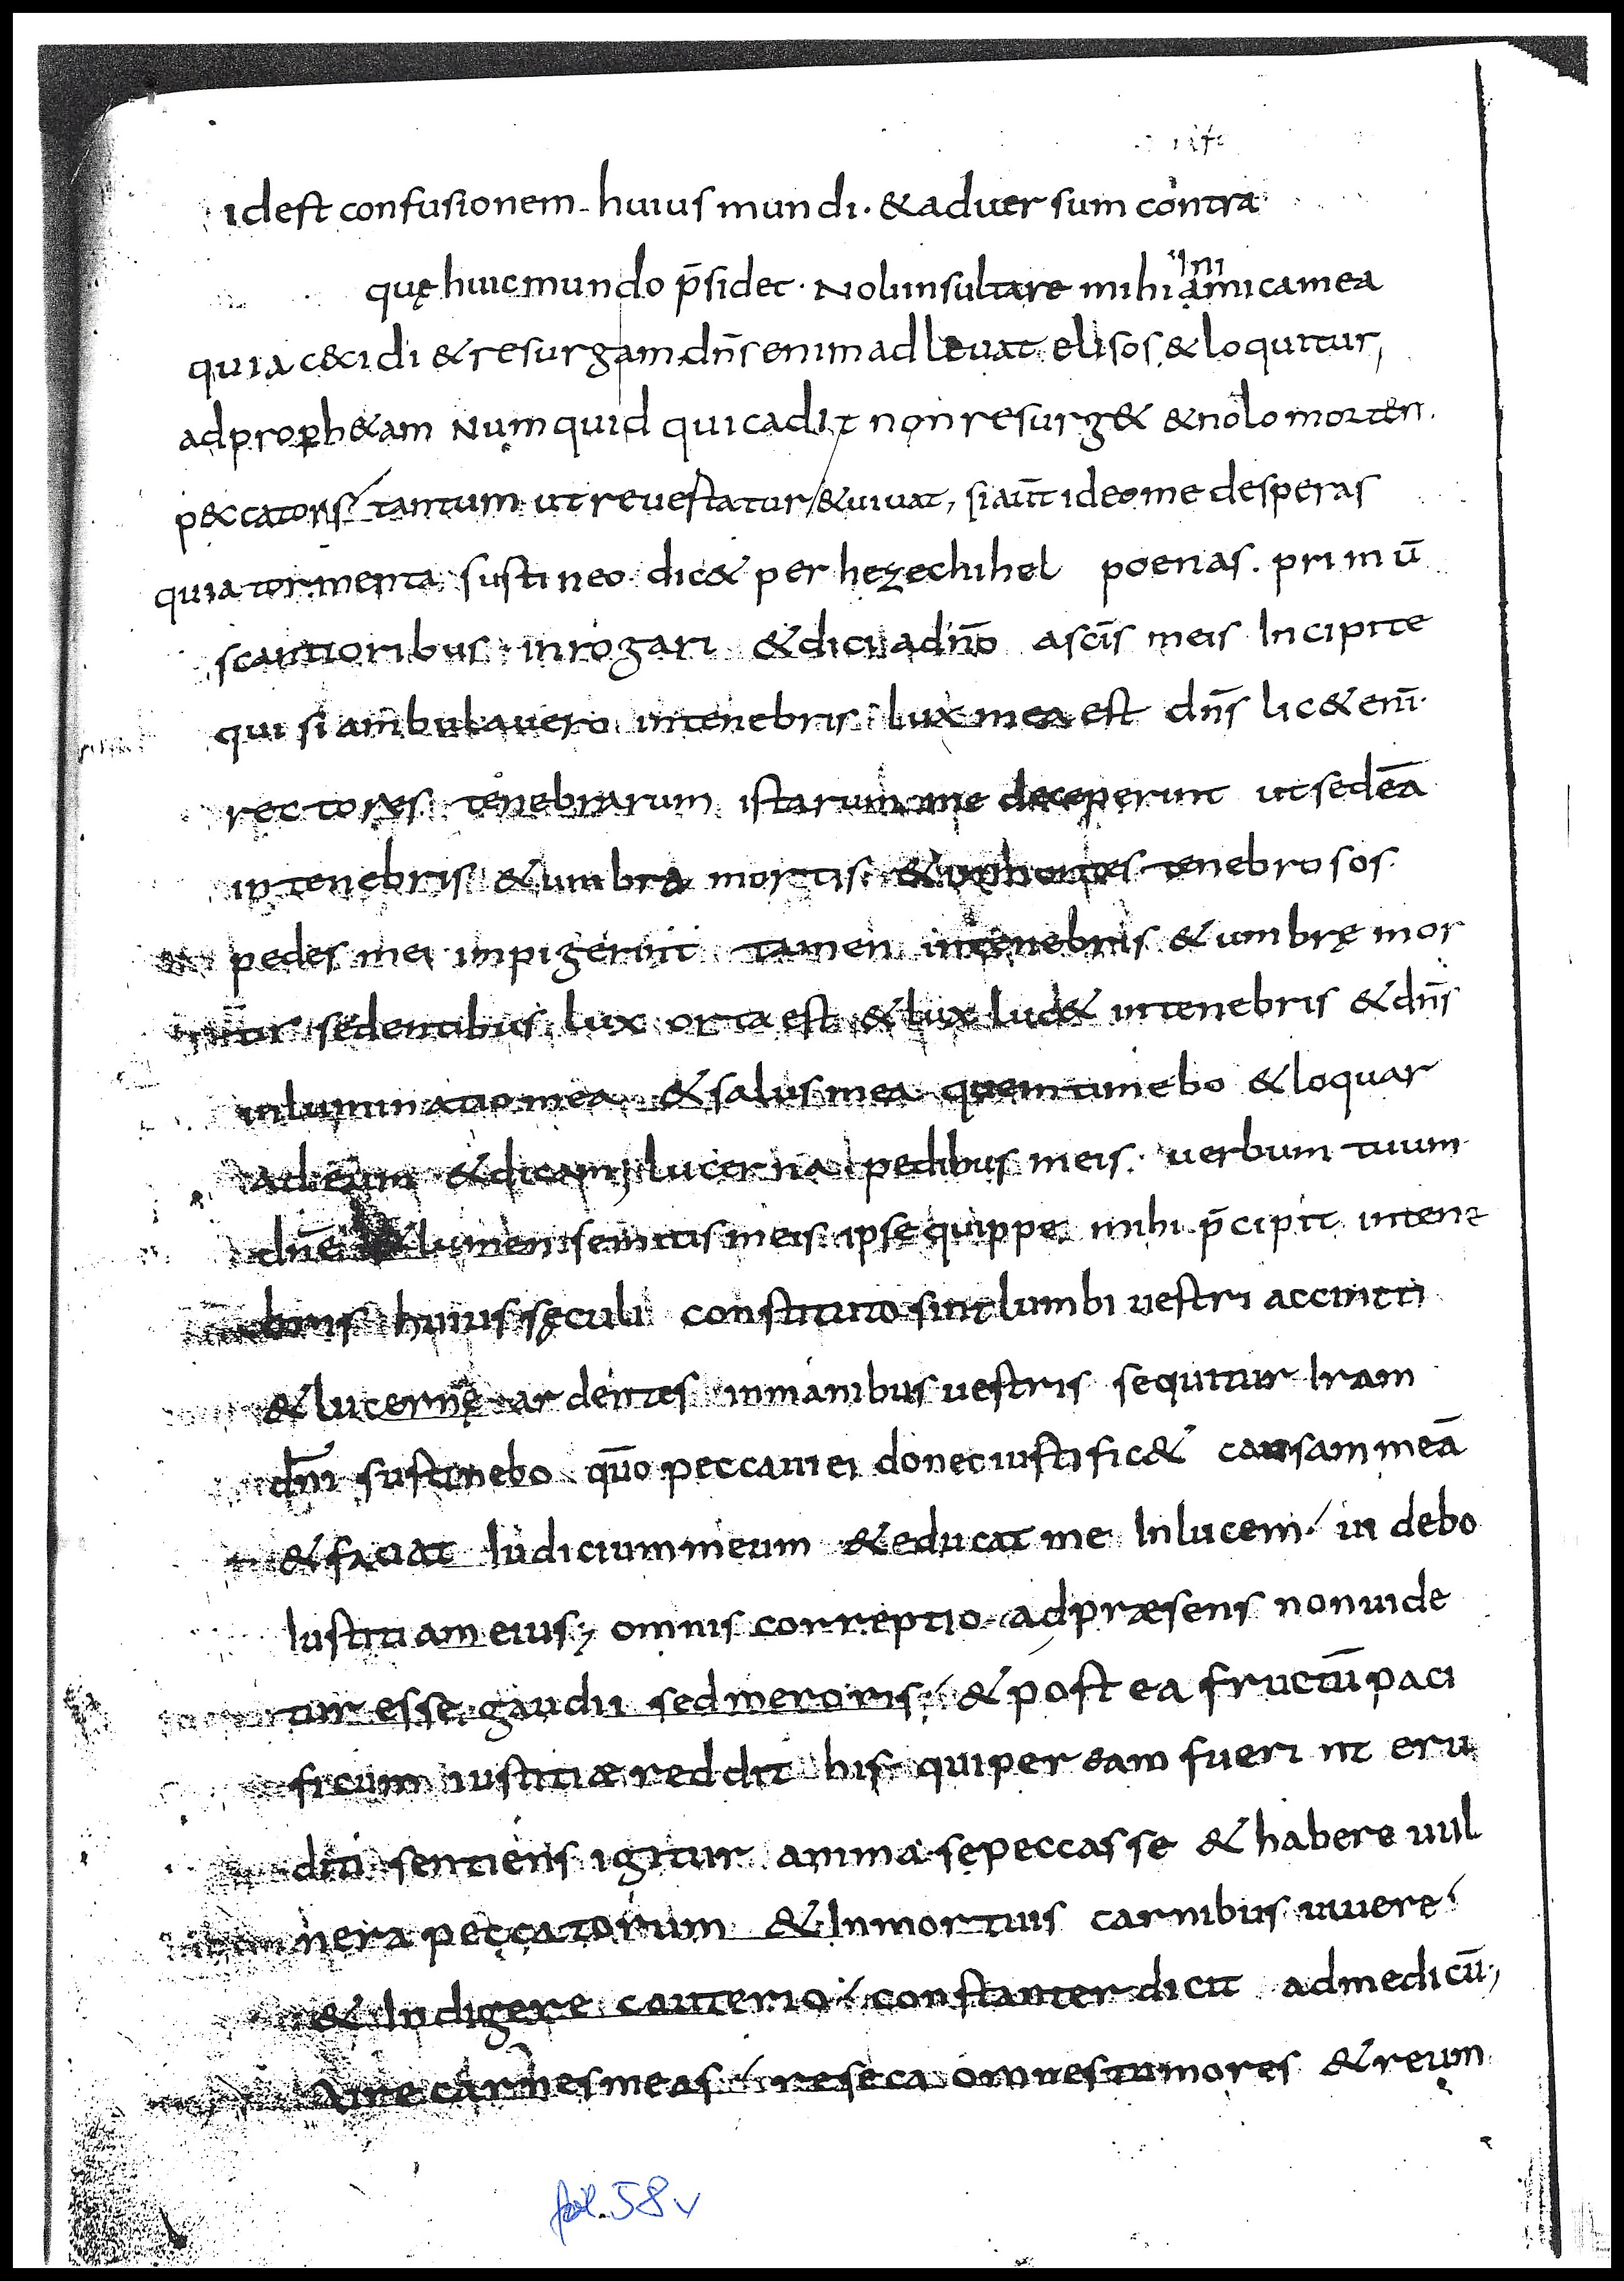 idest confusionem huius mundi · & aduersum contra
quę huic mundo p̄sidet · Noli insultare mihi inimica mea
quia cecidi & resurgam dn̄s enim adleuat elisos & loquitur,
ad proph&am Numquid qui cadit non resurg& & nolo morten
peccatoris tantum ut reuertatur & uiuat, si aūt ideo me desperas
quia tormenta sustineo dic& per hezechihel poenas · primū
scantioribus inrogari & dici a dn̄o a sc̄is meis Incipite
qui si ambulauero in tenebris lux mea est dn̄s lic& enī
rectores tenebrarum istarum me deceperunt ut sedeā
in tenebris & umbra mortis & tenebrosos
pedes mei impigerint tamen in tenebris & umbrę mor
tis sedentibus lux orta est & lux luc& in tenebris & dn̄s
inluminatio mea & salus mea quem timebo & loquar
ad eum & dicam lucerna pedibus meis uerbum tuum
dn̄e & lumen semitis meis ipse quippe mihi p̄cipit in tene
bris huius sęculi constituto sint lumbi uestri accincti
& lucernę ardentes in manibus uestris sequitur Iram
dn̄i sustinebo qūo peccaui ei donec iustific& causam meā
& faciat Iudicium meum & educat me In lucem uidebo
Iustitiam eius, omnis correptio ad præsens non uide
tur esse gaudii sed meroris & postea fructū paci
ficum iustitiæ reddit his qui per eam fuerint eru
diti sentiens igitur anima se peccasse & habere uul
nera peccatorum & In mortuis carnibus uiuere
& Indigere cauterio constanter dicit ad medicū,
Ure carnes meas reseca omnes tumores & reum
fol. 58v